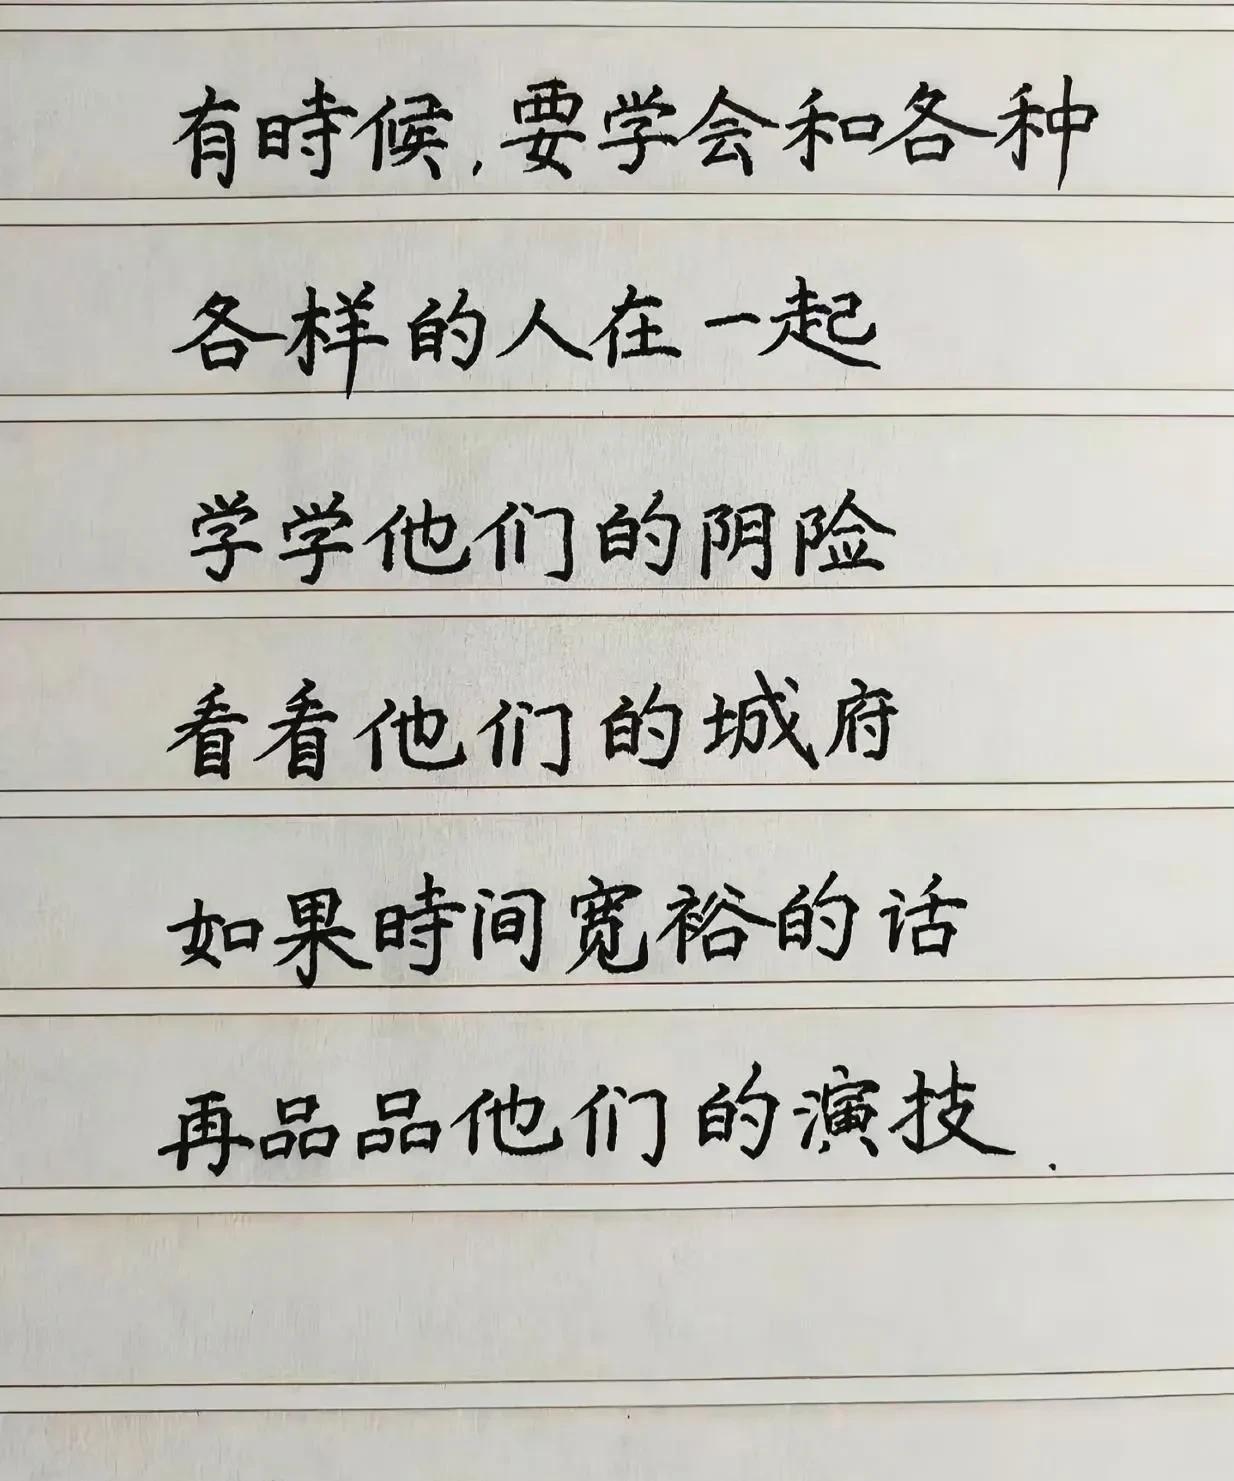 有時候,要学会和各种
各样的人在一起
学学他们的阴险
看看他们的城府
如果時间宽裕的话
再品品他们的演技.